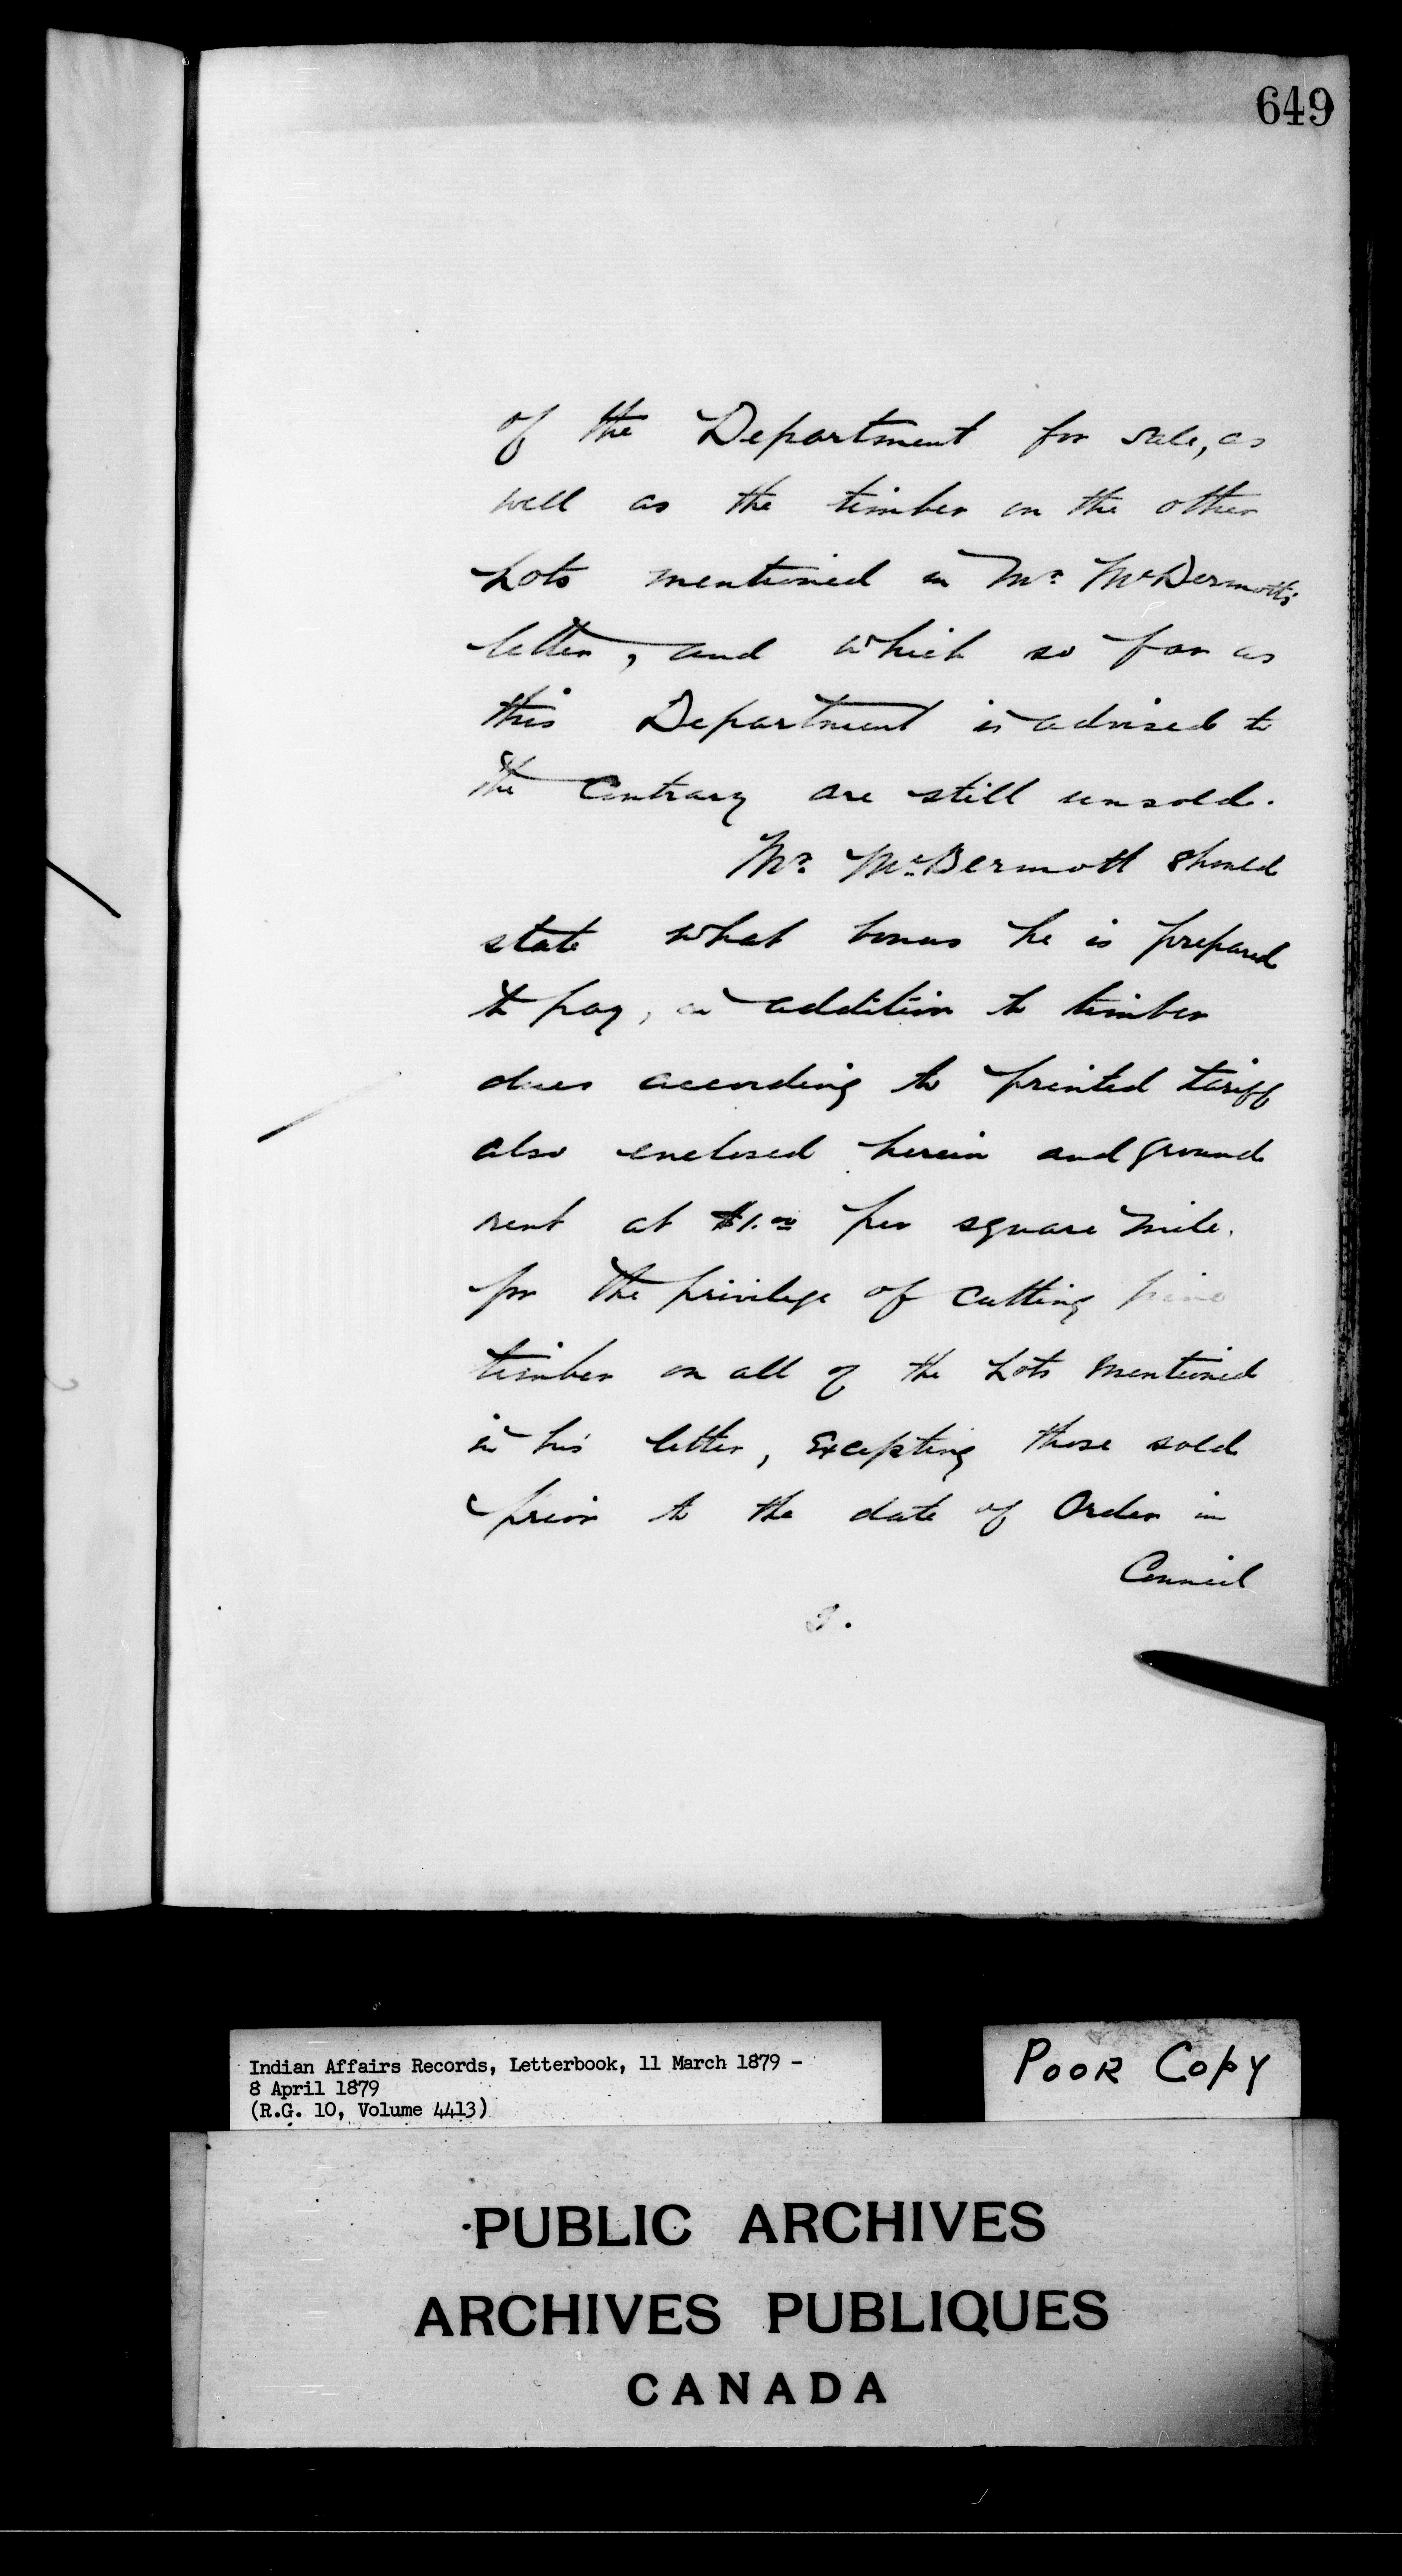 649
of the Department for sale, as
well as the timber on the other
Lots mentioned in Mr. McDermott's
letter, and which so far as
this Department is advised to
the Contrary are still unsold.
Mr. McDermott should
state what bonus he is prepared
to pay, in addition to timber
dues according to printed tariff
also enclosed herein and ground
rent at $1.00 per square mile.
for the privilege of cutting pine
timber on all of the Lots mentioned
in his letter, Excepting those sold
prior to the date of Order in
Council
Indian Affairs Records, Letterbook, 11 March 1879 -
8 April 1879
(R.G. 10, Volume 4413)
POOR COPY
PUBLIC ARCHIVES
ARCHIVES PUBLIQUES
CANADA